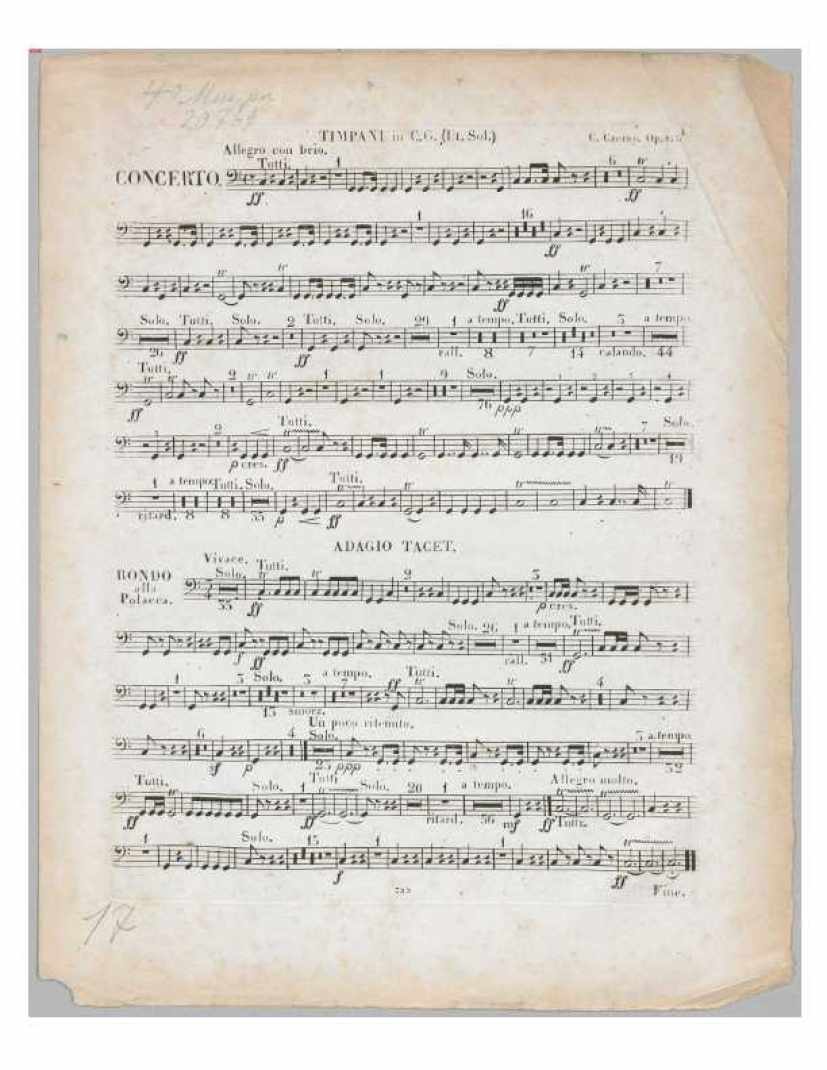 4° Mus. pr.
TIMPANI in C.G. (Ut. Sol.) C. Czerny, Op.
Allegro con brio.
Tutti. 1 6 tr
CONCERTO. ff ff
1 16
ff
tr tr tr 7
ff
Solo. Tutti. Solo. 2 Tutti. Solo. 29 1 a tempo. Tutti. Solo. 3 a tempo
26 ff ff rall. 8 7 14 calando. 44
Tutti.
tr tr 2 tr tr 1 1 9 Solo.
ff 76 ppp
2 Tutti. tr tr 7 Solo.
p cres. ff 19
1 a tempo. Tutti. Solo. Tutti. tr tr
ritard. 8 8 55 p ff
ADAGIO TACET.
Vivace.
RONDO Solo. Tutti. tr tr 2 3
alla
Polacca. 55 ff p cres.
Solo. 26 1 a tempo. Tutti.
f ff rall. 51 ff
1 3 Solo. 3 a tempo. 7 ff Tutti. tr tr 4
15 smorz.
Un poco ritenuto.
6 4 Solo. 3 a tempo
sf p 25 ppp 52
Tutti. tr Solo. 1 Tutti Solo. 20 1 a tempo. Allegro molto.
ff ff ritard. 56 mf ff Tutti.
1 Solo. 15 1 1
f ff
Fine.
17